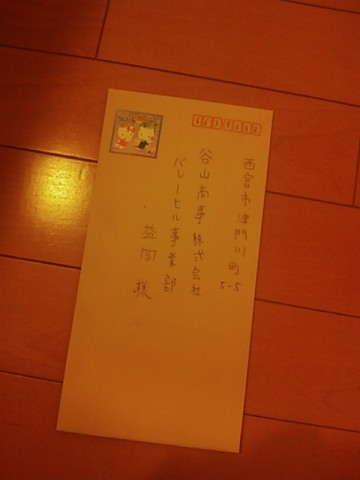 西宮市津門川町
5-5
谷山商事株式会社
バレーヒル事業部
益岡 様